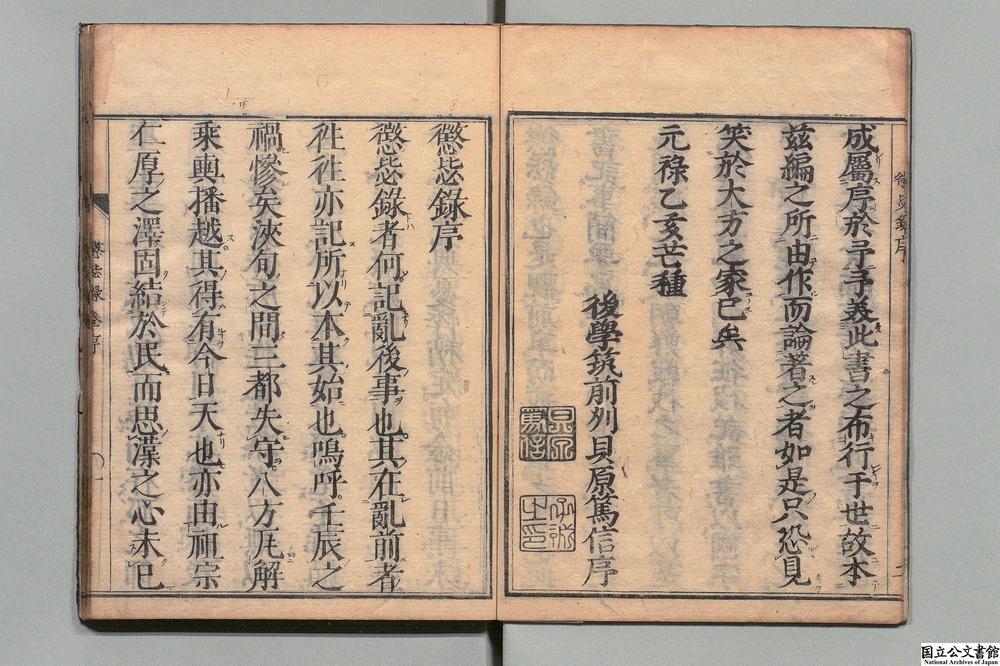 成屬序於予予義此書之布行于世故本
茲編之所由作而論著之者如是只恐見
笑於大方之家已矣
元祿乙亥芒種
後學筑前州貝原篤信序
懲毖錄序
懲毖錄者何記亂後事也其在亂前者
徃徃亦記所以本其始也嗚呼壬辰之
禍慘矣浹旬之間三都失守八方瓦解
乘輿播越其得有今日天也亦由祖宗
仁厚之澤固結於民而思漢之心未已
懲毖錄 卷序
国立公文書館
National Archives of Japan